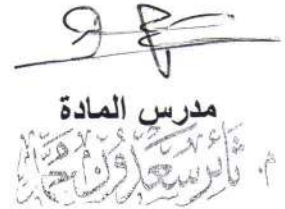 مدرس المادة
م. ثائر سعدون